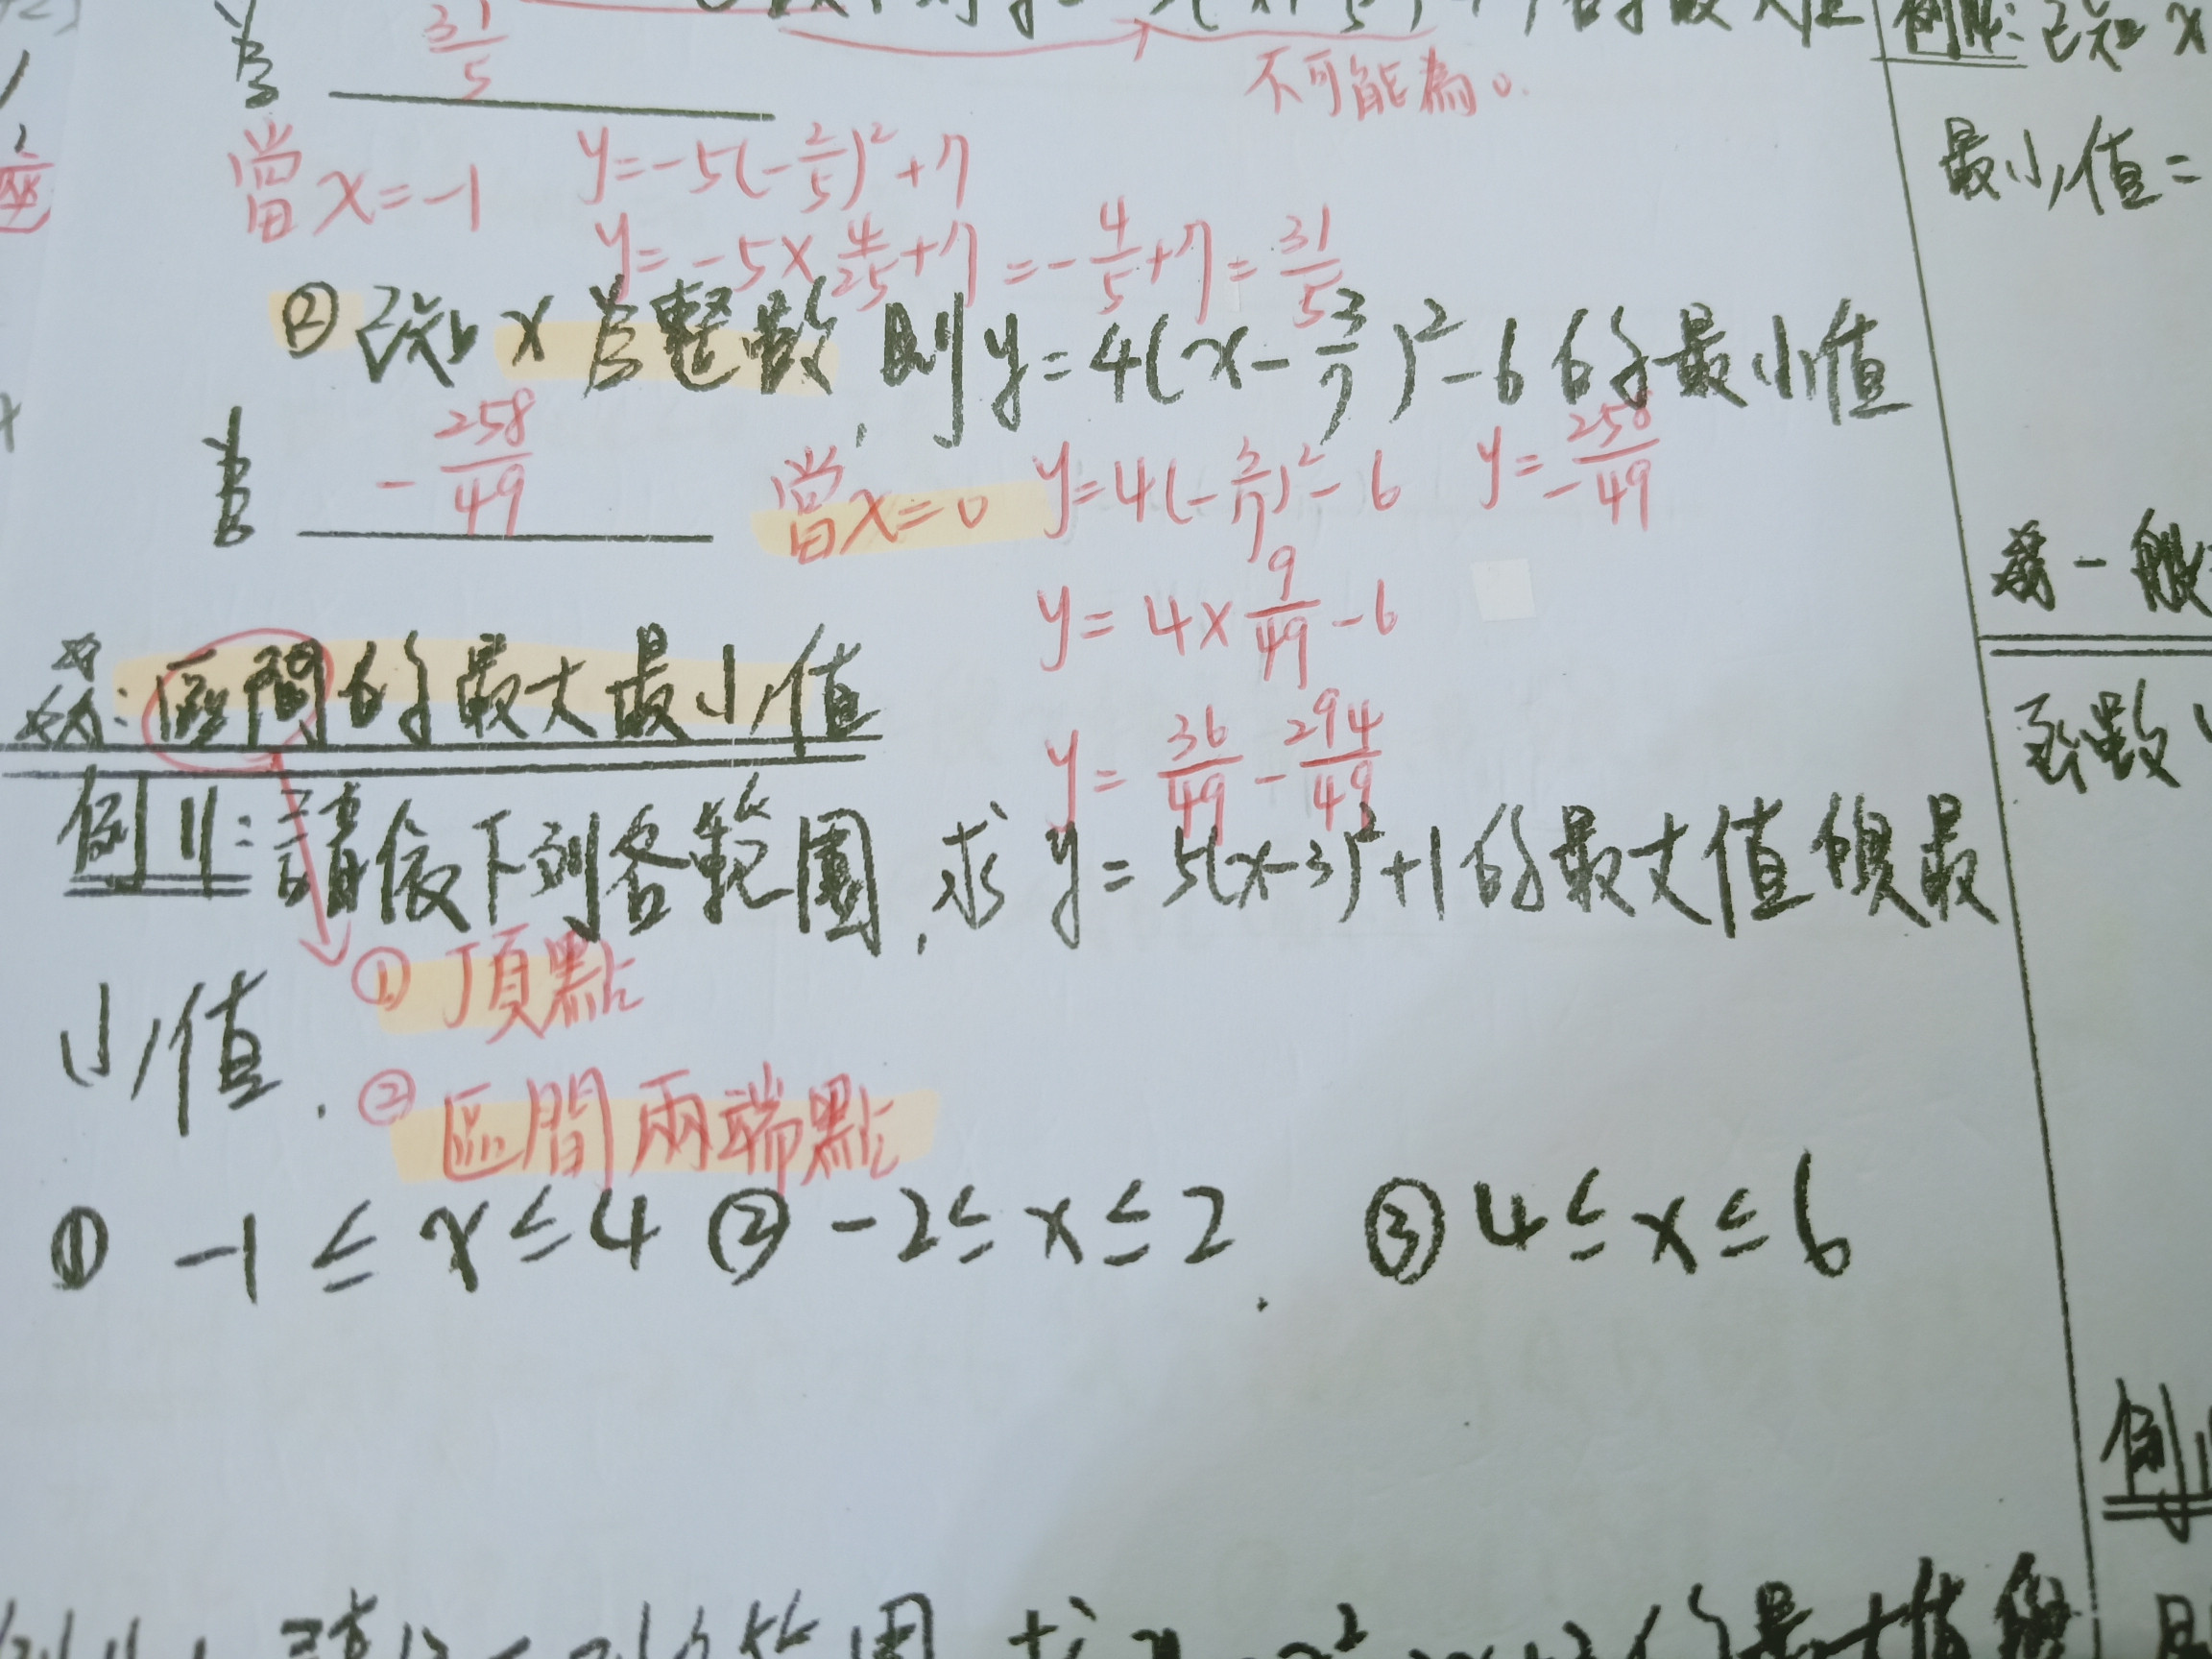 為 31/5
不可能為0.
當x=-1 y=-5(-2/5)²+7
y=-5×4/25+7=-4/5+7=31/5
② 已知x為整數,則y=4(x-3/7)²-6的最小值
為 -258/49
當x=0 y=4(-3/7)²-6 y=-258/49
y=4×9/49-6
y=36/49-294/49
區間的最大最小值
例11:請依下列各範圍,求y=5(x-3)²+1的最大值與最
小值.
① 頂點
② 區間兩端點
① -1≤x≤4 ② -2≤x≤2. ③ 4≤x≤6
已知x
最小值=
一般
函數
例